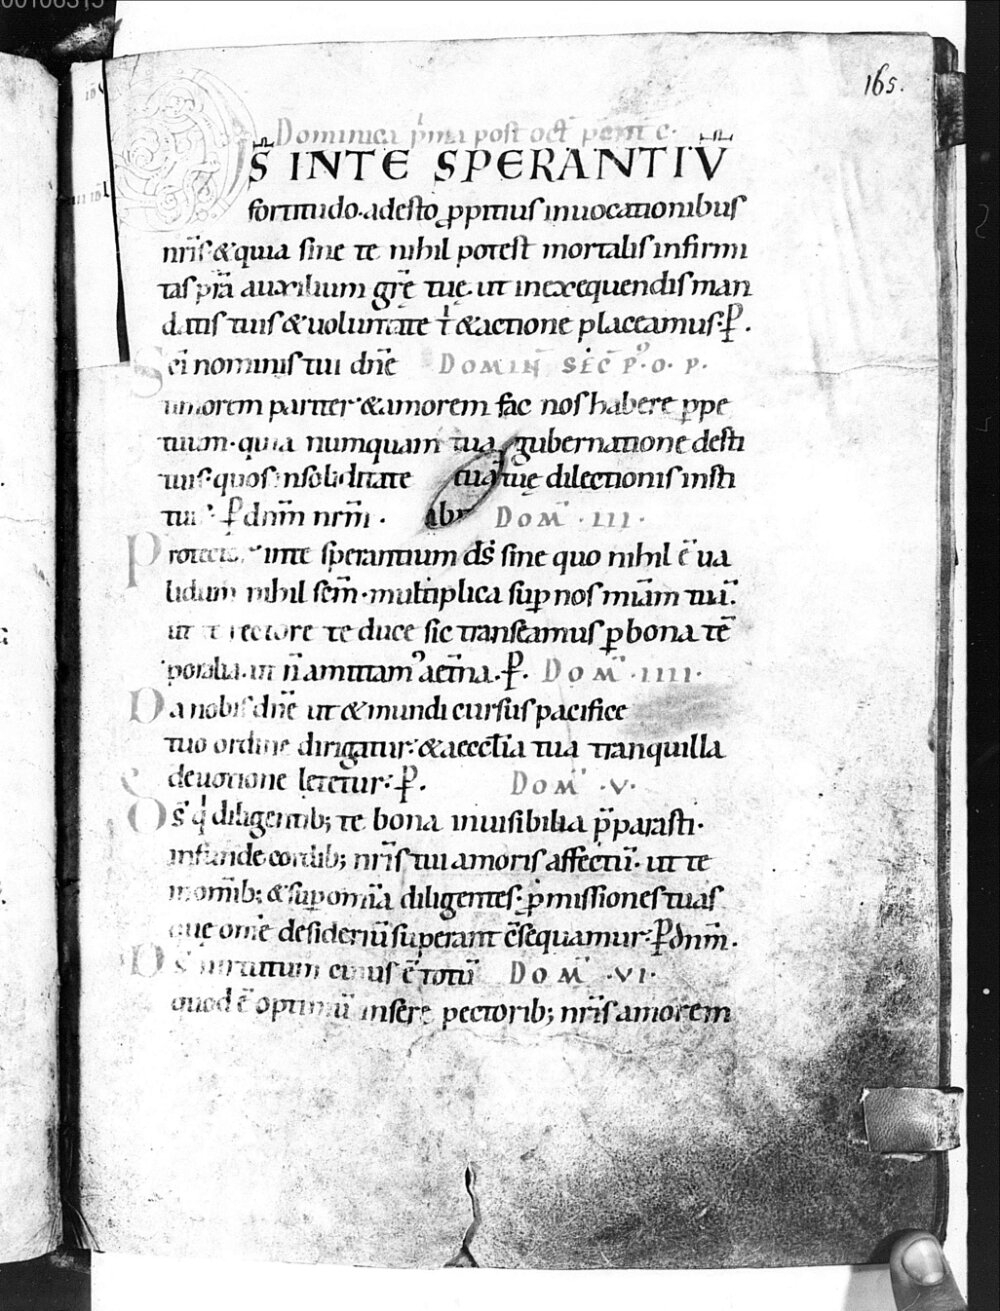 165.
Dominica p̓ma post oct pent̄ c.
DS̄ INTE SPERANTIV̄
fortitudo. adesto ꝓpitius inuocationibus
nr̄is & quia sine te nihil potest mortalis infirmi
tas p̄ta auxilium gr̄ę tuę. ut inexequendis man
datis tuis & uoluntate t̄ & actione placeamus. P̲.
Sc̄i nominis tui dn̄e DOMIN̄ SEC̄ P.O.P.
timorem pariter & amorem fac nos habere ꝑpe
tuum. quia numquam tua gubernatione desti
tuis quos insoliditate tuę dilectionis insti
tuis P̲ dn̄m nr̄m. DOM̄ .III.
Protector inte sperantium ds̄ sine quo nihil ē ua
lidum nihil sc̄m. multiplica suꝑ nos mīam tuā.
ut te rectore te duce sic transeamus ꝑ bona tē
poralia. ut n̄ amittamꝰ aet̄na. P̲. DOM̄ .IIII.
Da nobis dn̄e ut & mundi cursus pacifice
tuo ordine dirigatur. & aeccl̄ia tua tranquilla
deuotione letetur. P̲. DOM̄ .V.
Ds̄ q̓ diligentib; te bona inuisibilia p̄parasti.
infunde cordib; nr̄is tui amoris affectū. ut te
inomīb; & suꝑ omīa diligentes. ꝓmissiones tuas
quę om̄e desideriū superant c̄sequamur. P̲ dn̄m.
Ds̄ uirtutum cuius ē totū DOM̄ .VI.
quod ē optimū insere pectorib; nr̄is amorem